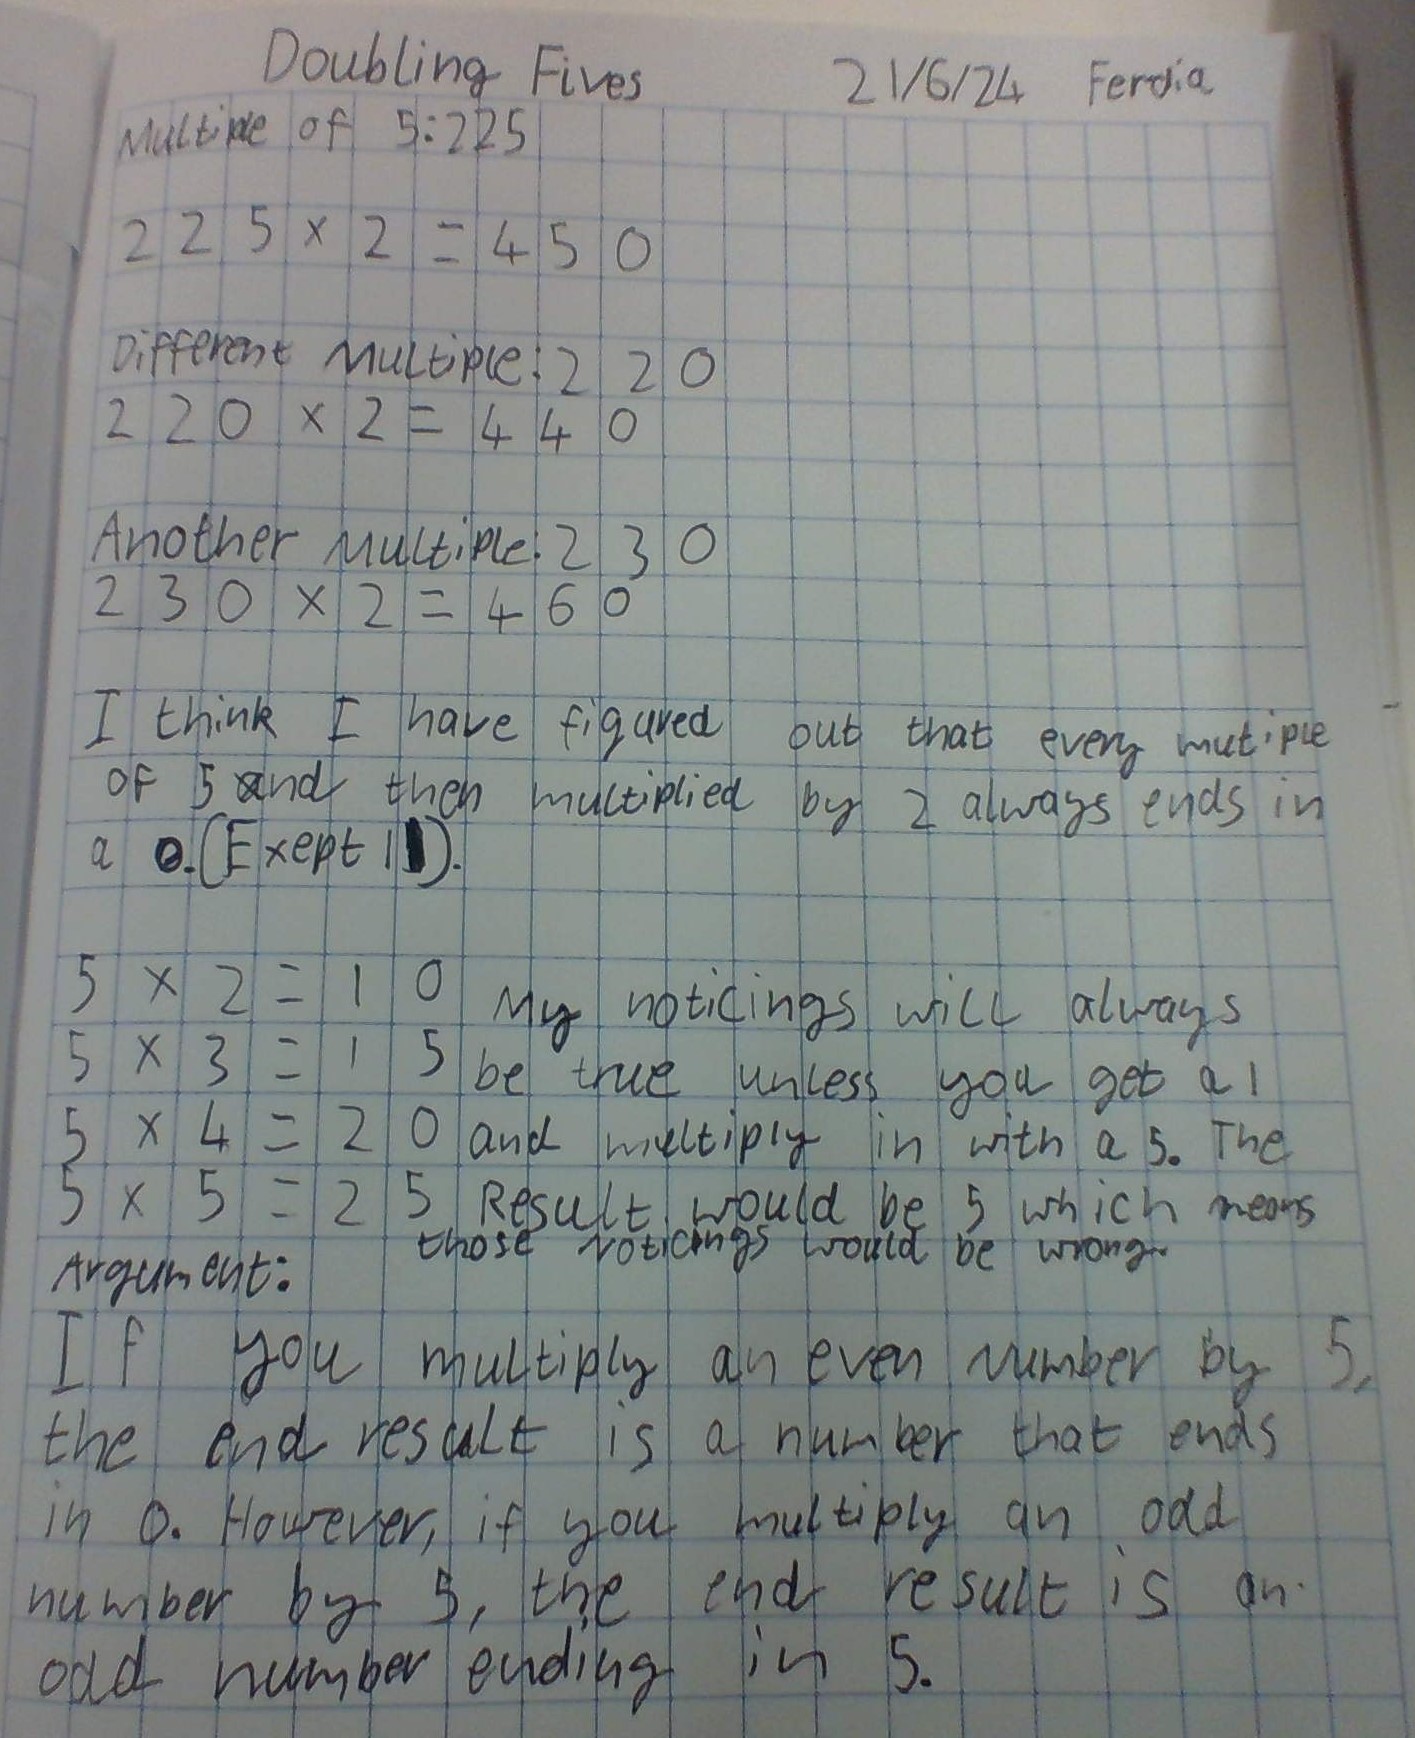 Doubling Fives 21/6/24 Ferdia
Multiple of 5:225
225 × 2 = 450
Different Multiple: 220
220 × 2 = 440
Another Multiple: 230
230 × 2 = 460
I think I have figured out that every mutiple
of 5 and then multiplied by 2 always ends in
a 0. (Exept 1).
5 × 2 = 10 My noticings will always
5 × 3 = 15 be true unless you get a 1
5 × 4 = 20 and multiply in with a 5. The
5 × 5 = 25 Result would be 5 which means
those noticings would be wrong.
Argument:
If you multiply an even number by 5,
the end result is a number that ends
in 0. However, if you multiply an odd
number by 5, the end result is an
odd number ending in 5.